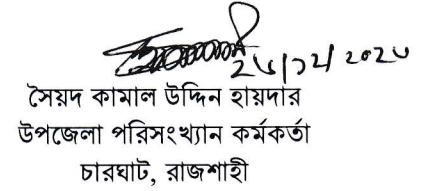 সৈয়দ কামাল উদ্দিন হায়দার
উপজেলা পরিসংখ্যান কর্মকর্তা
চারঘাট, রাজশাহী